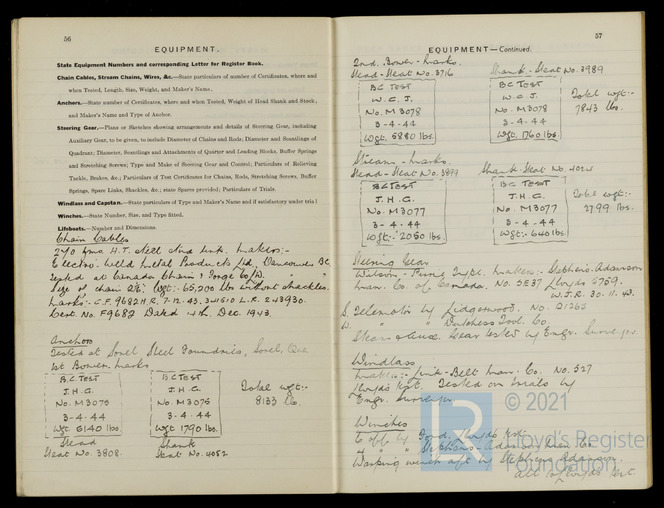 56
EQUIPMENT.
State Equipment Numbers and corresponding Letter for Register Book.
Chain Cables, Stream Chains, Wires, &c.—State particulars of number of Certificates, where and
when Tested, Length, Size, Weight, and Maker's Name.
Anchors.—State number of Certificates, where and when Tested, Weight of Head Shank and Stock,
and Maker's Name and Type of Anchor.
Steering Gear.—Plans or Sketches showing arrangements and details of Steering Gear, including
Auxiliary Gear, to be given, to include Diameter of Chains and Rods; Diameter and Scantlings of
Quadrant; Diameter, Scantlings and Attachments of Quarter and Leading Blocks, Buffer Springs
and Stretching Screws; Type and Make of Steering Gear and Control; Particulars of Relieving
Tackle, Brakes, &c.; Particulars of Test Certificates for Chains, Rods, Stretching Screws, Buffer
Springs, Spare Links, Shackles, &c.; state Spares provided; Particulars of Trials.
Windlass and Capstan.—State particulars of Type and Maker's Name and if satisfactory under trial
Winches.—State Number, Size, and Type fitted.
Lifeboats.—Number and Dimensions.
Chain Cables
270 fms H.T. steel stud link. Makers:-
Electric Weld Metal Products Ltd, Vancouver BC.
Tested at Canada Chain & Forge Co/
Size of chain Wgt:- 65,200 lbs without shackles.
Marks:- L.R. 243930.
Cert. No. F9682 Dated 4th Dec. 1943.
Anchors
Tested at Sorel Steel Foundries, Sorel, Que
1st Bower. marks
BC TEST
J.H.G.
No. M3075
3-4-44
Wgt 6140 lbs.
Head
Heat No. 3808.
BC TEST
J.H.G.
No. M3076
3-4-44
Wgt. 1790 lbs.
Shank
Heat No. 4052
Total wgt:-
8133 lbs.
57
EQUIPMENT—Continued.
2nd. Bower - marks.
Head - Heat No. 3716
BC TEST
W.C.J.
No. M3078
3-4-44
Wgt. 5880 lbs.
Shank - Heat No. 3989
BC TEST
W.C.J.
No. M3078
3-4-44
Wgt. 1760 lbs.
Total wgt:-
7843 lbs.
Stream - marks.
Head - Heat No. 3899
BC TEST
J.H.G.
No. M3077
3-4-44
Wgt:- 2050 lbs.
Shank Heat No. 4024
BC TEST
J.H.G.
No. M3077
3-4-44
Wgt:- 640 lbs.
Total wgt:-
2799 lbs.
Steering Gear
Wilson-Pirrie Type. Makers:- Stephens-Adamson
Man. Co. of Canada. No. SE37 Lloyds 6759.
W.J.R. 30.11.43.
Telemotor by Lidgerwood. No. D1265
" " Dutchess Tool Co.
Steam & Gear tested by Engr. Surveyor.
Windlass
Makers:- Link-Belt Man. Co. No. 527
Lloyds Rpt. Tested on trials by
Engr. Surveyor
Winches
6 off by Lloyds Rpt.
" Stephens-Adamson Man Co.
Working winch aft by Stephens Adamson.
all Lloyds Cert.
© 2021
LR
Lloyd's Register
Foundation